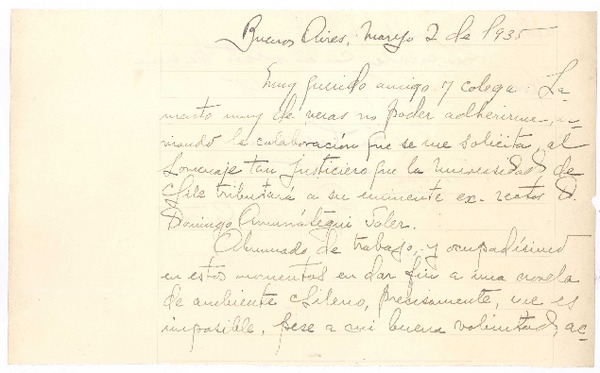 Buenos Aires, Marzo 2 de 1935
Muy querido amigo y colega: La-
mento muy de veras no poder adherirme, en-
viando la colaboración que se me solicita, al
homenaje tan justiciero que la Universidad de
Chile tributará a su eminente ex-rector D.
Domingo Amunátegui Solar.
Abrumado de trabajo, y ocupadísimo
en estos momentos en dar fin a una novela
de ambiente chileno, precisamente, me es
imposible, pese a mi buena voluntad, ac-